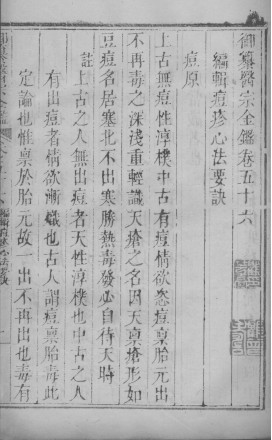 御纂醫宗金鑑卷五十六
編輯痘疹心法要訣
痘原
上古無痘性淳樸中古有痘情欲恣痘稟胎元出
不再毒之深淺重輕識天瘡之名因天稟瘡形如
豆痘名居塞北不出寒勝熱毒發必自待天時
註上古之人無出痘者天性淳樸也中古之人
有出痘者情欲漸熾也古人謂痘稟胎毒此
定論也惟稟於胎元故一出不再出也毒有